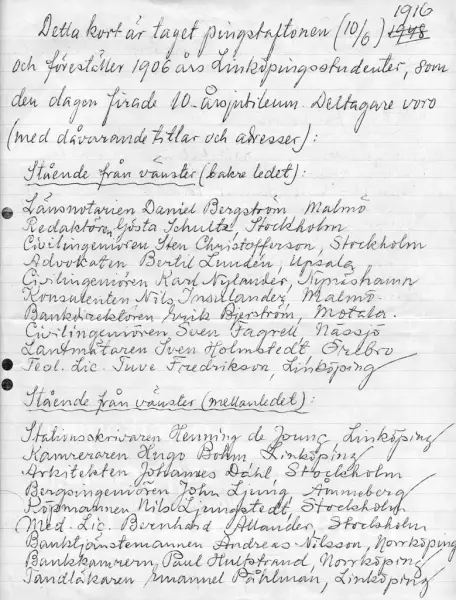 1916
Detta kort är taget pingstaftonen (10/6) 1948
och föreställer 1906 års Linköpingsstudenter, som
den dagen firade 10-årsjubileum. Deltagare voro
(med dåvarande titlar och adresser):
Stående från vänster (bakre ledet):
Länsnotarien Daniel Bergström, Malmö
Redaktören Gösta Schultz, Stockholm
Civilingeniören Sten Christofferson, Stockholm
Advokaten Bertil Lundén, Upsala
Civilingeniören Karl Nylander, Nynäshamn
Konsulenten Nils Insulander, Malmö
Bankdirektören Erik Bjerström, Motala
Civilingeniören Sven Fagrell, Nässjö
Lantmätaren Sven Holmstedt, Örebro
Teol. Lic. Tuve Fredrikson, Linköping
Stående från vänster (mellanledet):
Stationsskrivaren Henning de Joung, Linköping
Kamreraren Hugo Bohm, Linköping
Arkitekten Johannes Dahl, Stockholm
Bergsingeniören John Ljung, Åmmeberg
Köpmannen Nils Ljungstedt, Stockholm
Med. Lic. Bernhard Allander, Stockholm
Banktjänstemannen Andreas Nilsson, Norrköping
Bankkamrern, Paul Hultstrand, Norrköping
Tandläkaren Emanuel Påhlman, Linköping